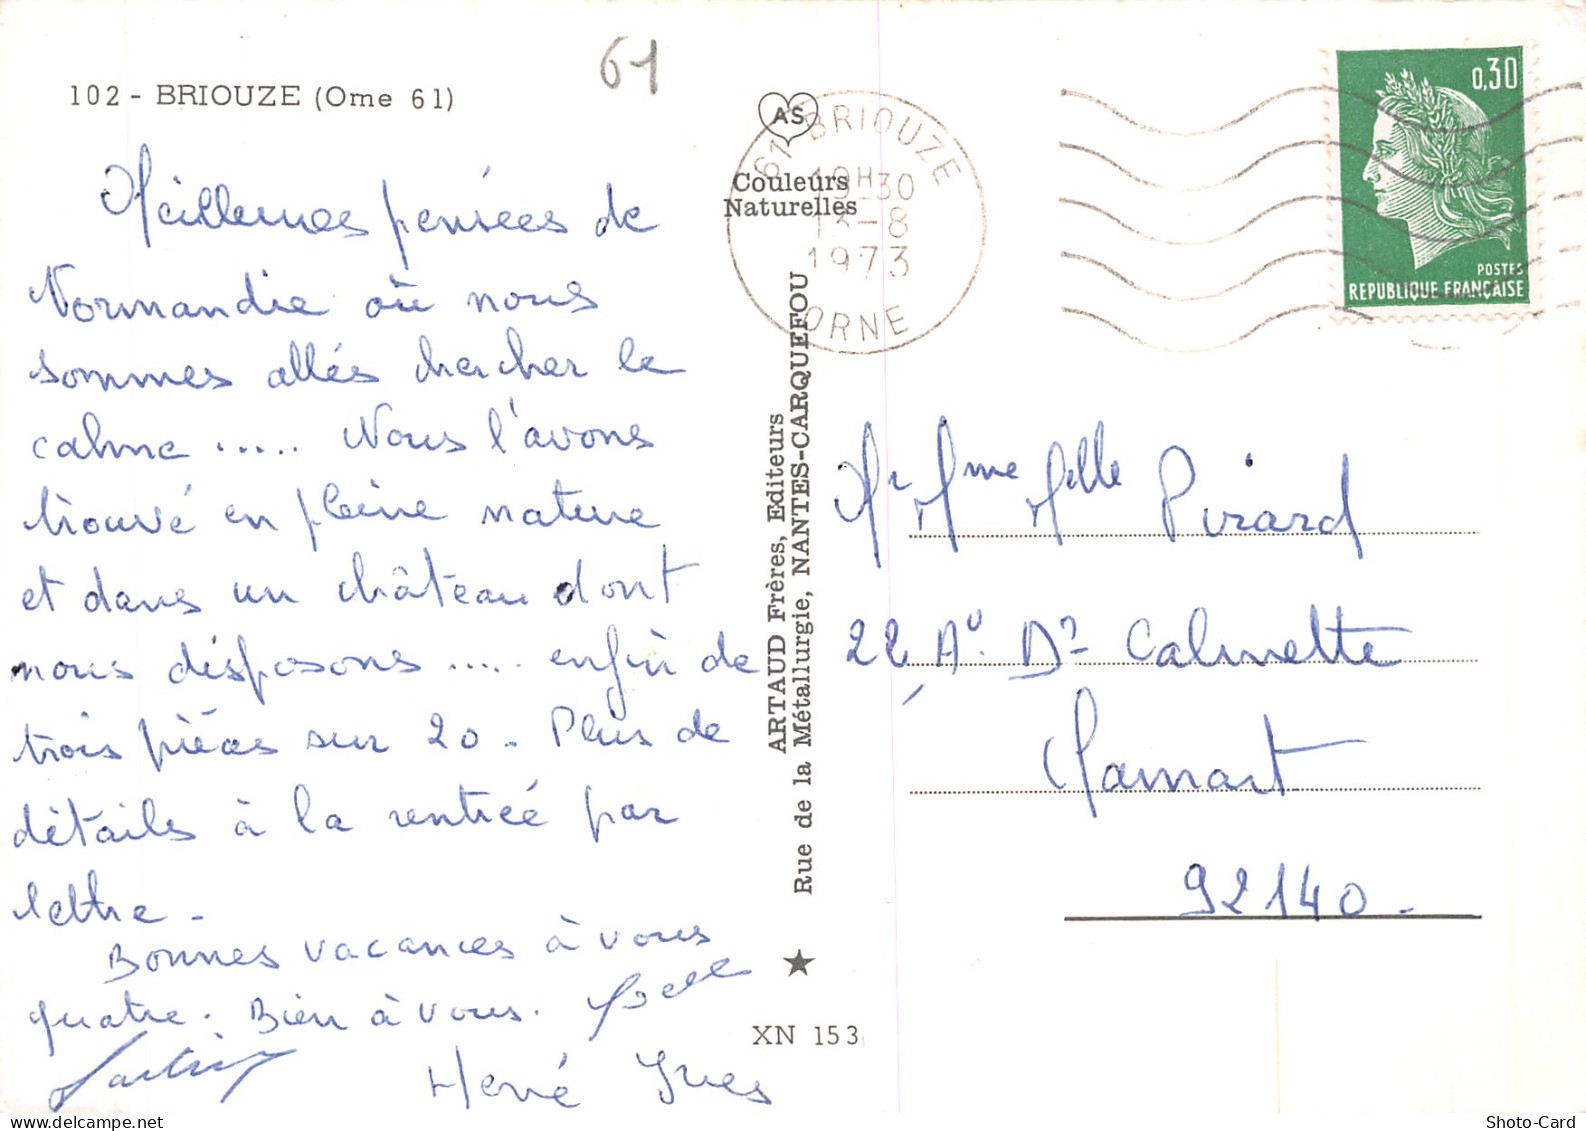 61
102 - BRIOUZE (Orne 61)
Meilleures pensées de
Normandie où nous
sommes allés chercher le
calme ..... Nous l'avons
trouvé en pleine nature
et dans un château dont
nous disposons ..... enfin de
trois pièces sur 20. Plus de
détails à la rentrée par
lettre.
Bonnes vacances à vous
quatre. Bien à vous.
Hervé Yves
AS
Couleurs
Naturelles
ARTAUD Frères, Editeurs
Rue de la Métallurgie, NANTES-CARQUEFOU
XN 153
61 BRIOUZE
19H30
13-8
1973
ORNE
0,30
POSTES
REPUBLIQUE FRANÇAISE
Mr Mme Melle Pirard
22 Av. Dr Calmette
Clamart
92140.
Shoto-Card